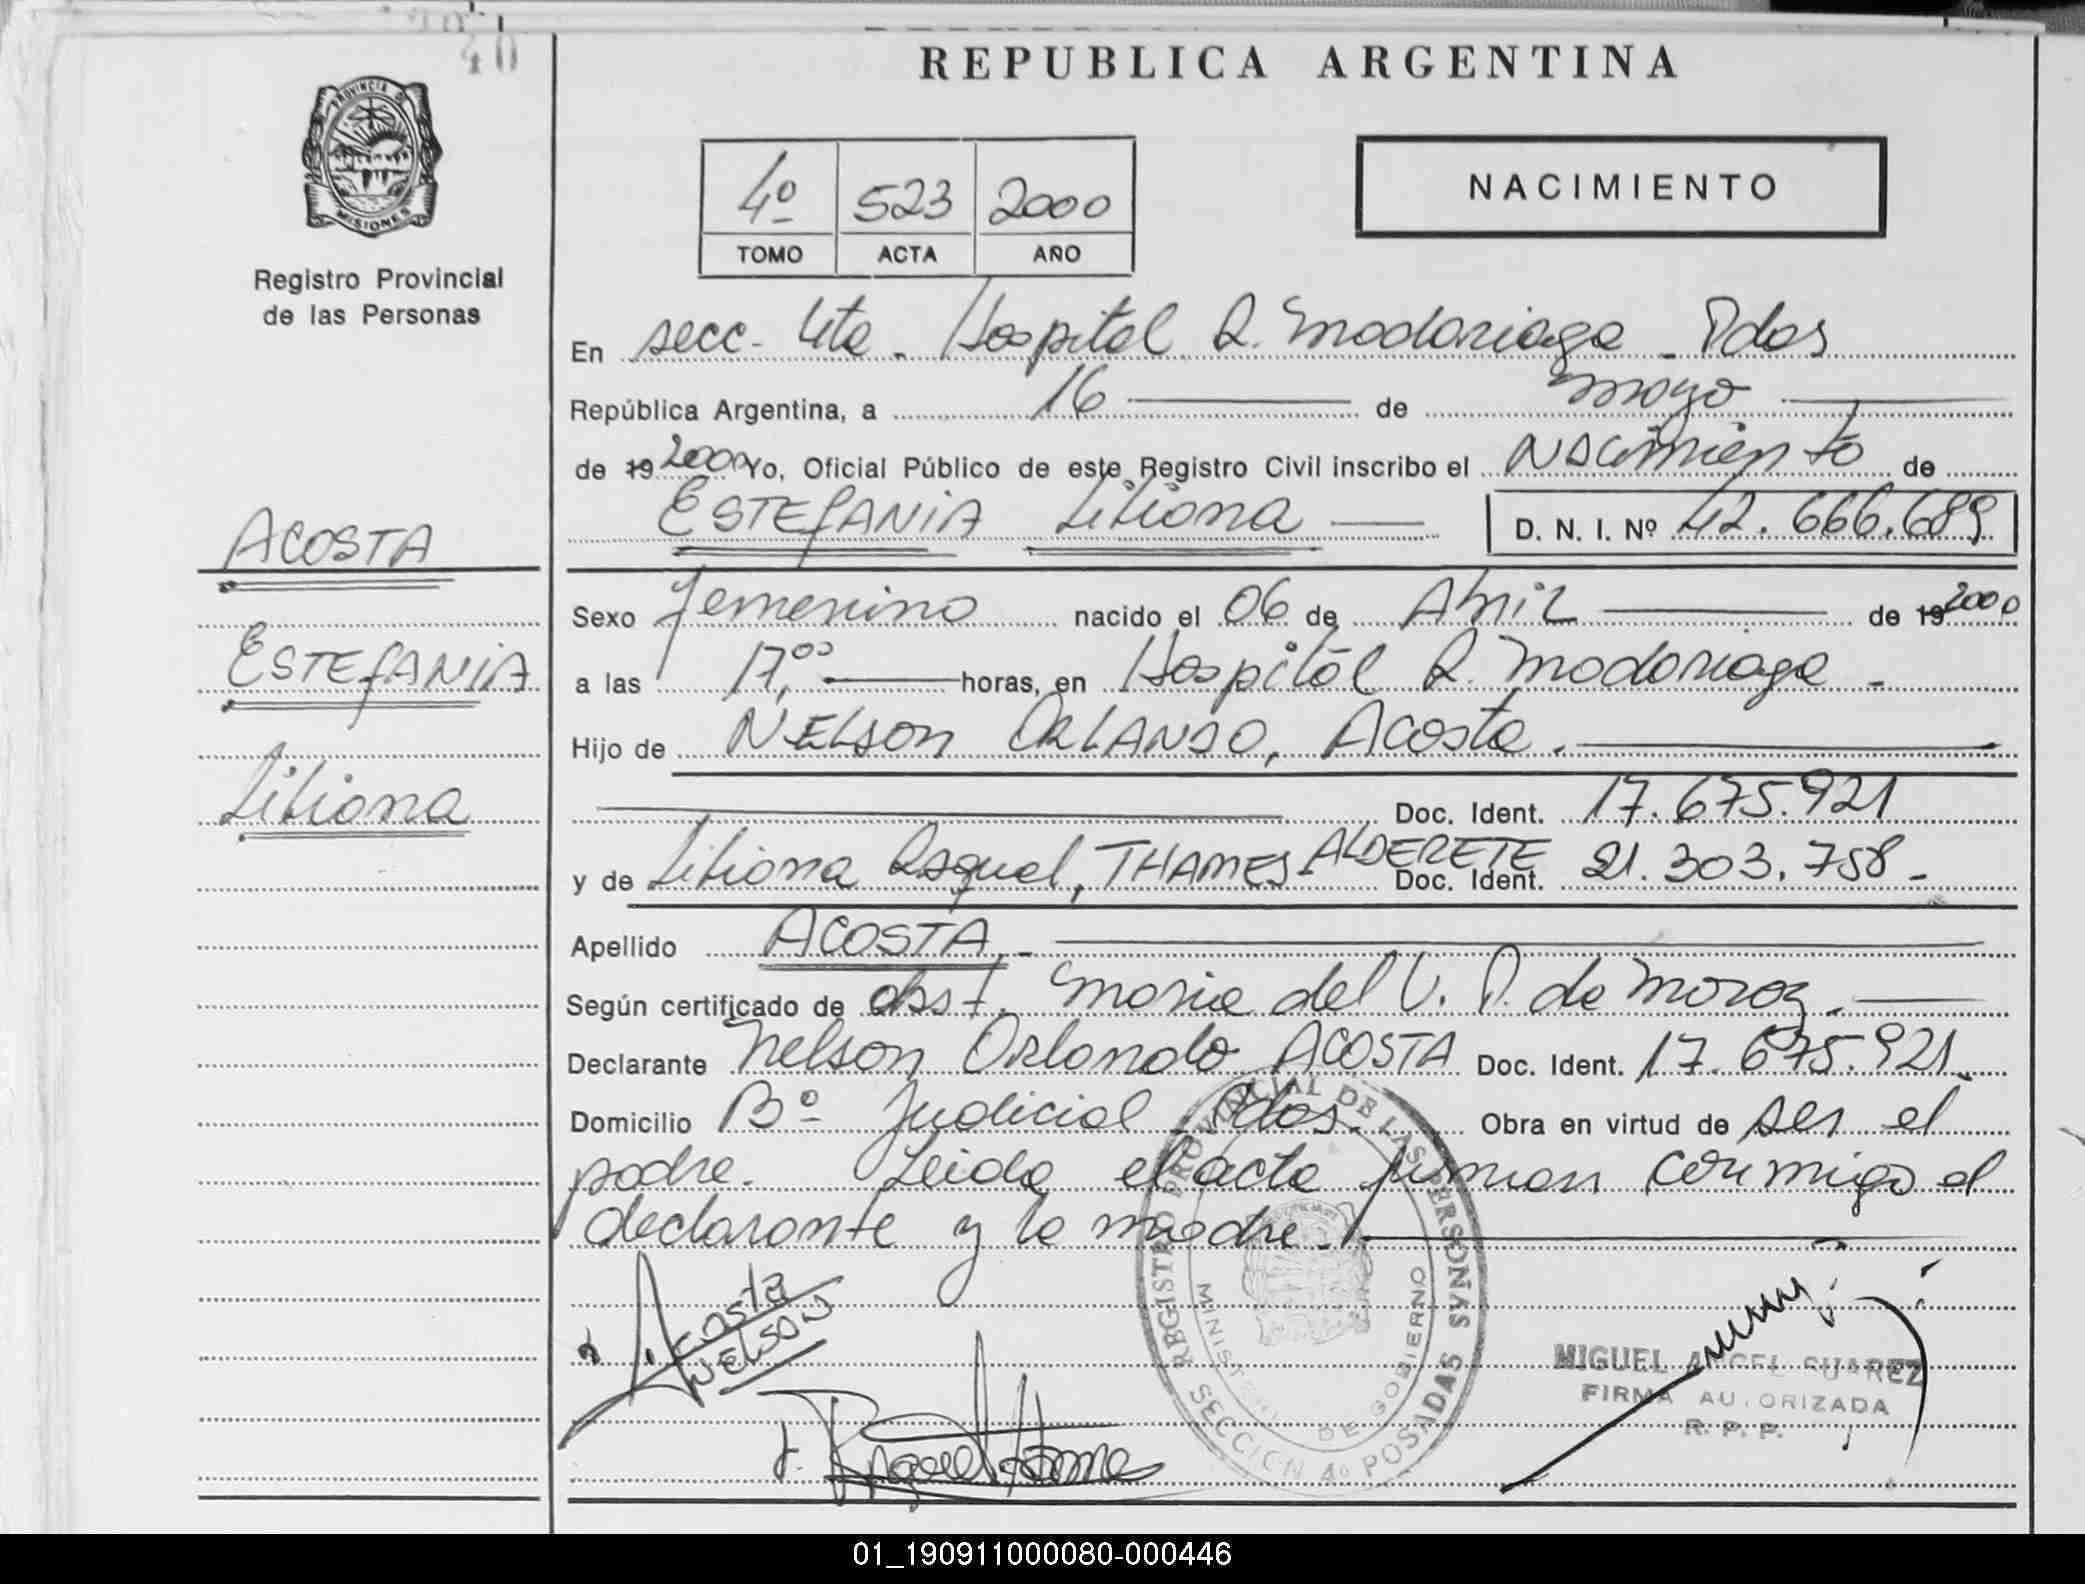 40
REPUBLICA ARGENTINA
PROVINCIA D
MISIONES
Registro Provincial
de las Personas
4º 523 2000
TOMO ACTA AÑO
NACIMIENTO
En secc. 4ta. Hospital R. Madariaga - Pdas
República Argentina, a 16 de mayo
de 19 2000 Yo, Oficial Público de este Registro Civil inscribo el Nacimiento de
ESTEFANIA Liliana D. N. I. Nº 42.666.689
ACOSTA
ESTEFANIA
Liliana
Sexo femenino nacido el 06 de Abril de 19 2000
a las 17,00 horas, en Hospital R. Madariaga -
Hijo de NELSON ORLANDO, Acosta.
Doc. Ident. 17.675.921
y de Liliana Raquel, THAMES ALDERETE Doc. Ident. 21.303.758 -
Apellido ACOSTA. -
Según certificado de obst. Maria del V. P. de Moroz.
Declarante Nelson Orlando ACOSTA Doc. Ident. 17.675.921.
Domicilio Bº Judicial Pdas. Obra en virtud de ser el
padre. Leida el acta firman conmigo el
declarante y la madre.
Acosta
NELSON
REGISTRO PROVINCIAL DE LAS PERSONAS
MINISTERIO DE GOBIERNO
SECCION 4º POSADAS MNES
MIGUEL ANGEL SUAREZ
FIRMA AUTORIZADA
R. P. P.
01_190911000080-000446